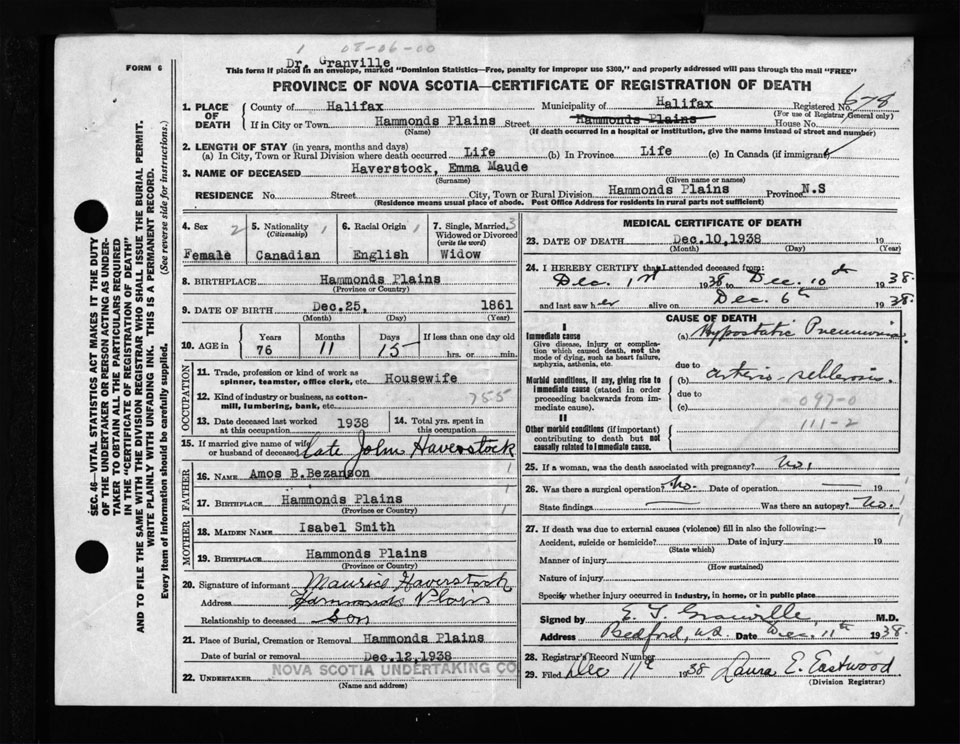 1 08-06-00
Dr. Granville
FORM 6
This form if placed in an envelope, marked "Dominion Statistics—Free, penalty for improper use $300," and properly addressed will pass through the mail "FREE"
PROVINCE OF NOVA SCOTIA—CERTIFICATE OF REGISTRATION OF DEATH
SEC. 46—VITAL STATISTICS ACT MAKES IT THE DUTY
OF THE UNDERTAKER OR PERSON ACTING AS UNDER-
TAKER TO OBTAIN ALL THE PARTICULARS REQUIRED
IN THE "CERTIFICATE OF REGISTRATION OF DEATH"
AND TO FILE THE SAME WITH THE DIVISION REGISTRAR WHO SHALL ISSUE THE BURIAL PERMIT.
WRITE PLAINLY WITH UNFADING INK. THIS IS A PERMANENT RECORD.
Every item of information should be carefully supplied. (See reverse side for instructions.)
1. PLACE OF DEATH County of Halifax Municipality of Halifax Registered No. 678
(For use of Registrar General only)
If in City or Town Hammonds Plains Street Hammonds Plains House No.
(Name) (If death occurred in a hospital or institution, give the name instead of street and number)
2. LENGTH OF STAY (in years, months and days)
(a) In City, Town or Rural Division where death occurred Life (b) In Province Life (c) In Canada (if immigrant)
3. NAME OF DECEASED Haverstock, Emma Maude
(Surname) (Given name or names)
RESIDENCE No. Street City, Town or Rural Division Hammonds Plains Province N.S
(Residence means usual place of abode. Post Office Address for residents in rural parts not sufficient)
4. Sex 2 Female
5. Nationality 1 (Citizenship) Canadian
6. Racial Origin 1 English
7. Single, Married, Widowed or Divorced (write the word) 3 Widow
8. BIRTHPLACE Hammonds Plains
(Province or Country)
9. DATE OF BIRTH Dec. 25, 1861
(Month) (Day) (Year)
10. AGE in Years Months Days If less than one day old
76 11 15 hrs. or min.
OCCUPATION
11. Trade, profession or kind of work as
spinner, teamster, office clerk, etc. Housewife
12. Kind of industry or business, as cotton-
mill, lumbering, bank, etc. 755
13. Date deceased last worked
at this occupation 1938
14. Total yrs. spent in
this occupation
15. If married give name of wife
or husband of deceased late John Haverstock
FATHER
16. NAME Amos B. Bezanson 1
17. BIRTHPLACE Hammonds Plains 1
(Province or Country)
MOTHER
18. MAIDEN NAME Isabel Smith
19. BIRTHPLACE Hammonds Plains
(Province or Country)
20. Signature of informant Maurice Haverstock
Address Hammonds Plains
Relationship to deceased Son
21. Place of Burial, Cremation or Removal Hammonds Plains
Date of burial or removal Dec. 12, 1938
22. UNDERTAKER NOVA SCOTIA UNDERTAKING CO
(Name and address)
MEDICAL CERTIFICATE OF DEATH
23. DATE OF DEATH Dec. 10, 1938 19
(Month) (Day) (Year)
24. I HEREBY CERTIFY that I attended deceased from:
Dec. 1st 1938 to Dec. 10th 1938.
and last saw her alive on Dec. 6th 1938.
CAUSE OF DEATH
I
Immediate cause (a) Hypostatic Pneumonia
Give disease, injury or complica-
tion which caused death, not the
mode of dying, such as heart failure,
asphyxia, asthenia, etc.
due to
Morbid conditions, if any, giving rise to
immediate cause (stated in order
proceeding backwards from im-
mediate cause).
(b) arterio-sclerosis.
due to
(c) 097-0
II
111-2
Other morbid conditions (if important)
contributing to death but not
causally related to immediate cause.
25. If a woman, was the death associated with pregnancy? No.
26. Was there a surgical operation? No. Date of operation — 19
State findings — Was there an autopsy? No.
27. If death was due to external causes (violence) fill in also the following:—
Accident, suicide or homicide? Date of injury 19
(State which)
Manner of injury
(How sustained)
Nature of injury
Specify whether injury occurred in industry, in home, or in public place
Signed by E. T. Granville M.D.
Address Bedford, N.S. Date Dec. 11th 1938.
28. Registrar's Record Number
29. Filed Dec 11th 1938 Laura E. Eastwood
(Division Registrar)